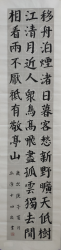 移舟泊煙渚日暮客愁新野曠天低樹
江清月近人衆鳥高飛盡孤雲獨去閒
相看兩不厭祗有敬亭山